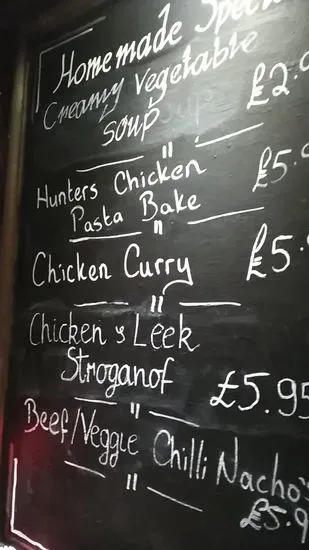 Homemade
Creamy Vegetable
Soup
Hunters Chicken
Pasta Bake
Chicken Curry
Chicken & Leek
Stroganof £5.95
Beef/Veggie Chilli Nacho's